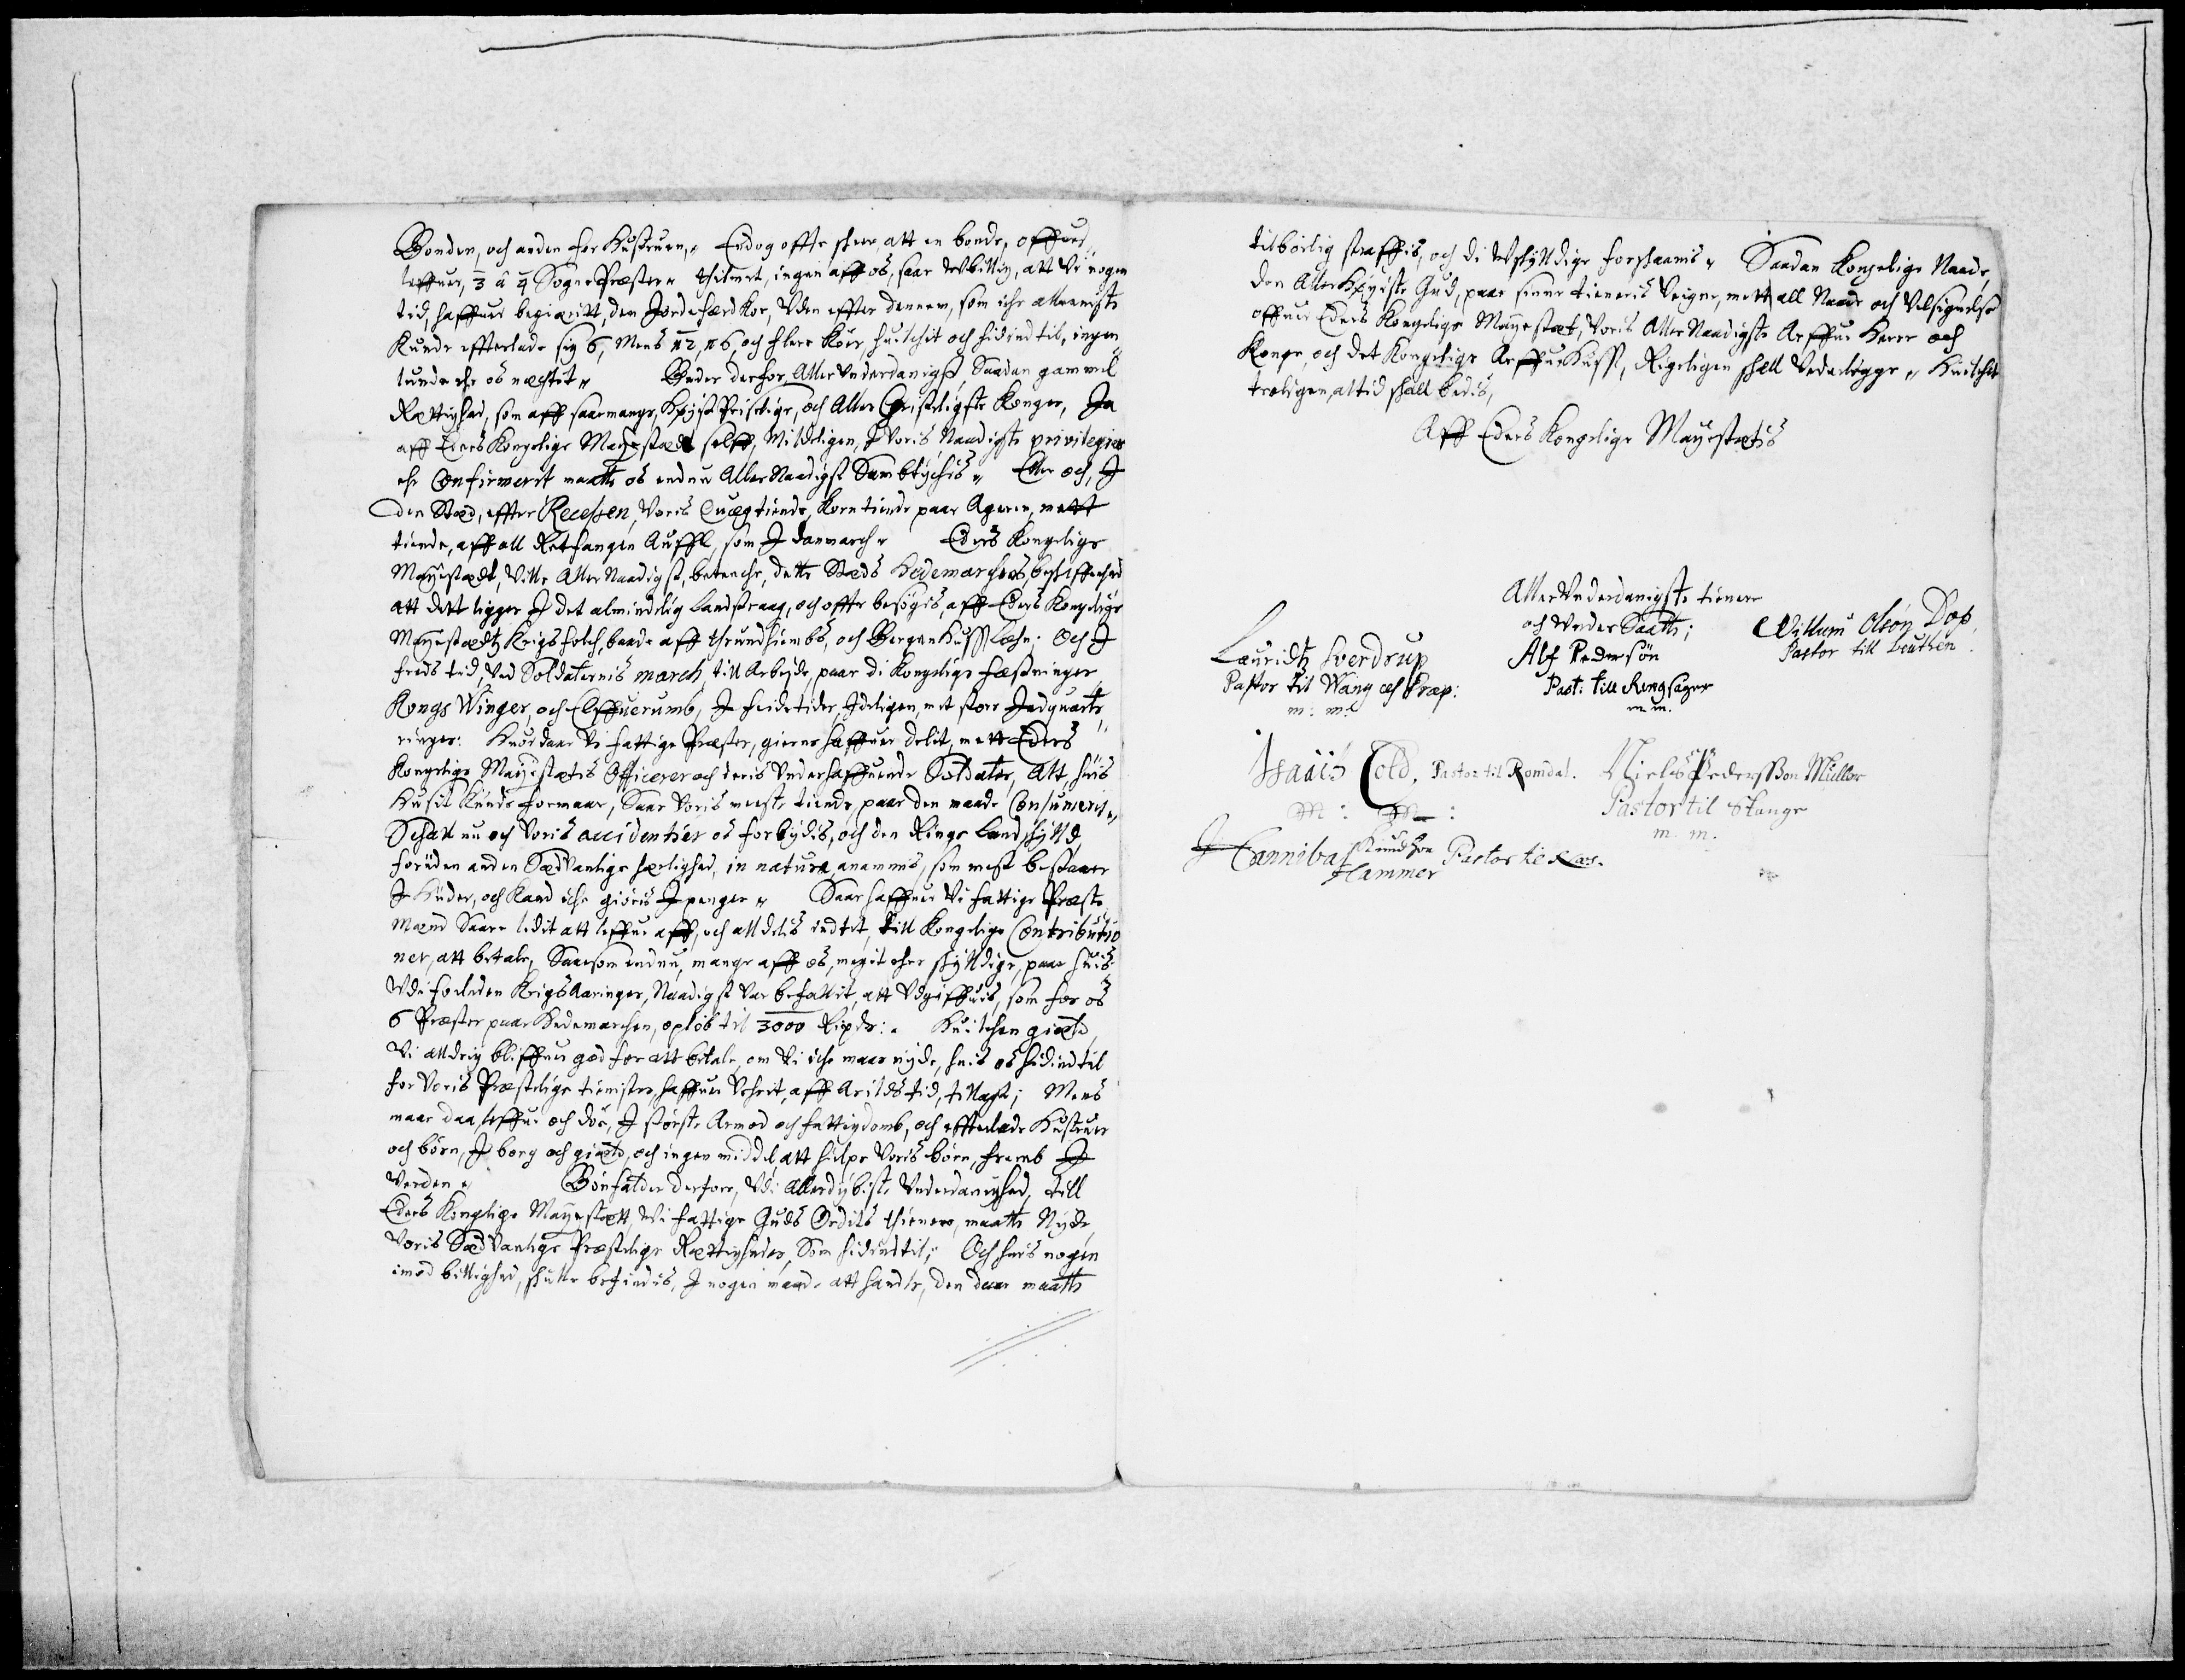 Bonden, och anden for Hustruen, Endog offte skeer, att en bonde, offuer
leffuer, 3 â 4 Sogne Præster thilmet, ingen aff os, saar Wbillig, att Vi nogen
tid, haffuer begiæritt, den Jordefærd Koe, Vden effter dennem, som iche allerringiste
Kunde effterlade sig 6, Mens 12, 16, och flere Kiør, huilchit och hidindtil, ingen
lunde ehr os nægtet Beder derfor, Aller Vnderdanigst, Saadan gammel
Rettighed, som aff saamange, Høyst Priselige, och Aller Christeligste Konger, Ja
aff Eders Kongelige Mayestædt self, Mildeligen, J Voris Naadigste privilegier
ehr Confirmerit maatte os endnu Aller Naadigst Sambtychis Eller och, J
den Stæd, effter Recessen, Voris Quægtiende, Korntiende paar Ageren, mett
tiende, aff all Retfangen Auffl, som J danmarch Eders Kongelige
Mayestædt, Ville Aller Naadigst, betenche, dette Stæds Hedemarchens, beskaffenhed
att dett ligger J det almindelig landstraag, och offte besøgis, aff Eders Kongelige
Mayestædtz Krigsfolch, baade aff thrundhiembs, och Bergenhuss læhn; Och J
freds tid, Ved Soldaternis march, till Arbeyde, paar di Kongelige fæstninger
Kongs Winger, och Elffuerumb, J feidetider, Ideligen, met store Indquarte
ringer. Huordaar Vi fattige Præster, gierne haffuer delit, mett Eders
Kongelige Mayestætis Officerer och deris Vnderhaffuende Soldater, Alt huis
Husit Kunde formaar, Saar Voris meste tiende, paar den maade Consumeris
Schall nu och Voris accidentier os forbydis, och den Ringe landskyld
foruden anden Sædvanlige herlighed, in natura, anammis, som mest bestaaer
J Huder, och Kand iche giøris J penger Saar haffuer Vi fattige Præste
Mænd Saare lidit att leffue aff, och alldelis indtet, till Kongelige Contributio
ner, att betale, Saasom endnu, mange aff os, megit ehre skyldige, paar huis
Vdi forleden Krigs Aaringer, Naadigst var befallit, att Vdgiffuis, som for os
6 Præster paar Hedemarchen, opløb til 3000 Rixdr: Huilchen giæld,
Vi alldrig bliffuer god for att betale, om Vi iche maar nyde, huis os hidindtil
for Voris Præstelige tienister, haffuer Verit, aff Arilds tid, tillagt; Mens
maar daa leffue och døe, J største Armod och fattigdomb, och effterlade Hustruer
och børn, J borg och giæld, och ingen middel, att hielpe Voris børn, fremb J
Verden Bønfalder derfore, Vdi Allerdybiste Vnderdanighed, till
Eders Konglige Mayestætt, Vi fattige Guds Ordits thienere, maatte Nyde
Voris Sædvanlige Præstelige Rettigheder, Som hidindtil; Och huis nogen
imod billighed, skulle befindis, J nogen maade att handle, den daar maatte
tilbørlig straffis, och di Wskyldige forskaanis Saadan Kongelige Naade,
den Aller Høyiste Gud, paar sinne tieneris Veigne, mett all Naade och Velsignelse
offuer Eders Kongelige Mayestæt, Voris Aller Naadigste Arffue Herre och
Konge, och det Kongelige Arffue Huss, Rigeligen skall Vederlegge Huilchit
troligen, altid skall bedis,
Aff Eders Kongelige Mayestætis
Aller Vnderdanigste tienere
och Vnder Saatte;
Lauridtz Sverdrup
Pastor til Wang och Præp:
m: m:
Alf Pedersøn
Past: till Ringsager
m. m.
Willum Olsøn Dop
Pastor till Leuthen
Isaais Cold, Pastor til Romdal.
m: m:
Niels Pederssøn Müller
Pastor til Stange
m. m.
Cannibal Knudsøn Hammer Pastor til Næs.